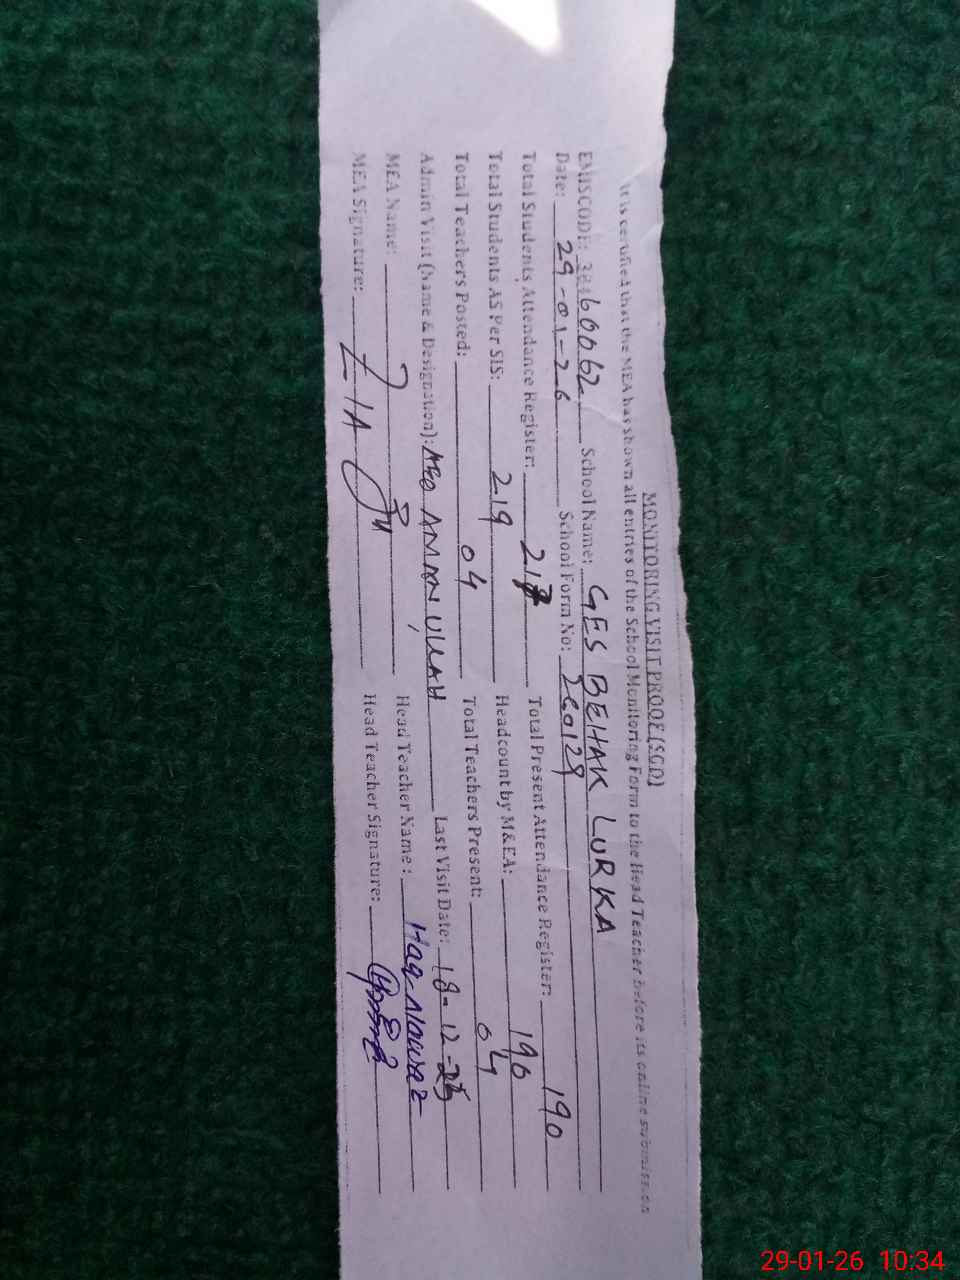 MONITORING VISIT PROOF (SGD)
It is certified that the MEA has shown all entries of the School Monitoring Form to the Head Teacher before its online submission
EMISCODE: 38160062 School Name: GES BEHAK LURKA
Date: 29-01-26 School Form No: 260129
Total Students Attendance Register: 217 Total Present Attendance Register: 190
Total Students AS Per SIS: 219 Headcount by M&EA: 190
Total Teachers Posted: 04 Total Teachers Present: 04
Admin Visit (Name & Designation): AEO AMAN ULLAH Last Visit Date: 18-12-25
MEA Name: Head Teacher Name: Haq Nawaz
MEA Signature: ZIA Head Teacher Signature:
29-01-26 10:34